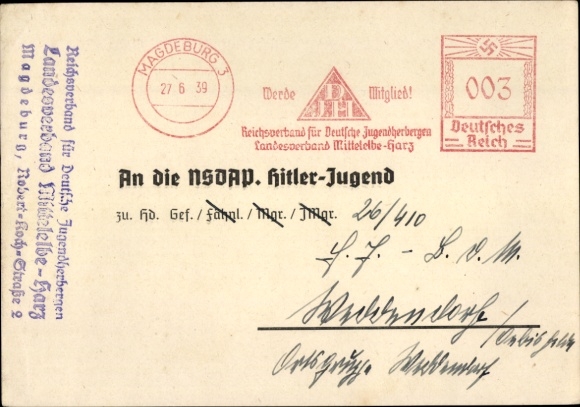 MAGDEBURG 3
27 6 39
Werde Mitglied!
DJH
Reichsverband für Deutsche Jugendherbergen
Landesverband Mittelelbe-Harz
003
Deutsches
Reich
Reichsverband für Deutsche Jugendherbergen
Landesverband Mittelelbe-Harz
Magdeburg, Robert-Koch-Straße 2
An die NSDAP. Hitler-Jugend
zu. Hd. Gef. / Fähnl. / Mgr. / JMgr. 26/410
H. J. - B. d. M.
Weddendorf
Ortsgruppe Weddendorf